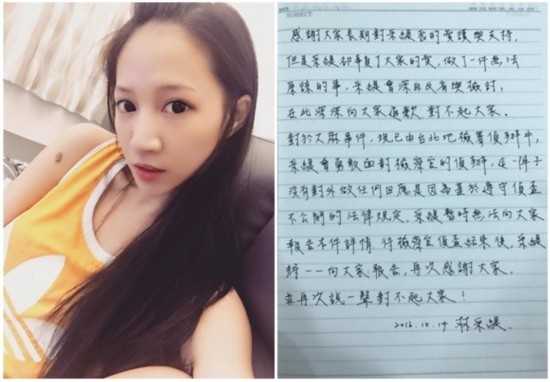 SUBJECT
感謝大家長期對采緹我的愛護與支持,
但是采緹卻辜負了大家的愛,做了一件無法
原諒的事,采緹會深自反省與檢討,
在此深深向大家道歉 對不起大家。
對於大麻事件,現已由台北地檢署偵辦中,
采緹會勇敢面對檢察官的偵辦,這一陣子
沒有對外做任何回應是因為基於遵守偵查
不公開的法律規定,采緹暫時無法向大家
報告本件詳情,待檢察官偵查結束後,采緹
將一一向大家報告,再次感謝大家。
並再次說一聲對不起大家!
2016.10.19 莊采緹